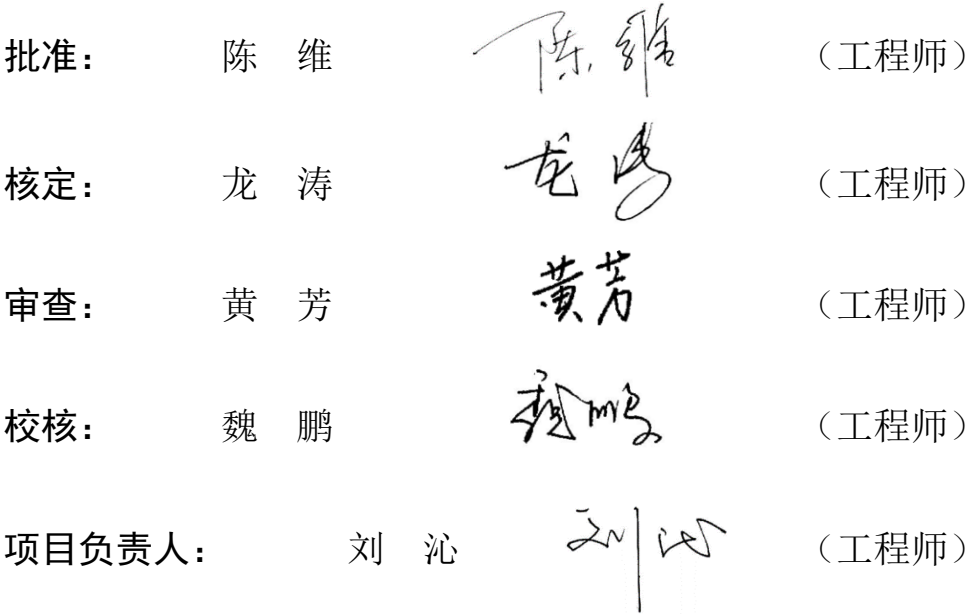 批准： 陈 维 陈维 （工程师）
核定： 龙 涛 龙涛 （工程师）
审查： 黄 芳 黄芳 （工程师）
校核： 魏 鹏 魏鹏 （工程师）
项目负责人： 刘 沁 刘沁 （工程师）